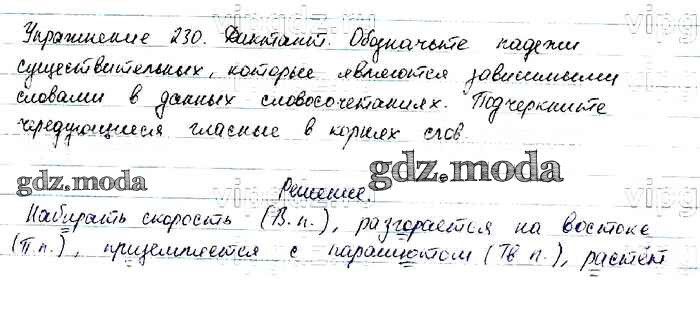 Упражнение 230. Диктант. Обозначьте падежи
существительных, которые являются зависимыми
словами в данных словосочетаниях. Подчеркните
чередующиеся гласные в корнях слов.
gdz.moda
gdz.moda
Решение.
Набирать скорость (В.п.), разгорается на востоке
(П.п.), приземляется с парашютом (Тв п.), растёт